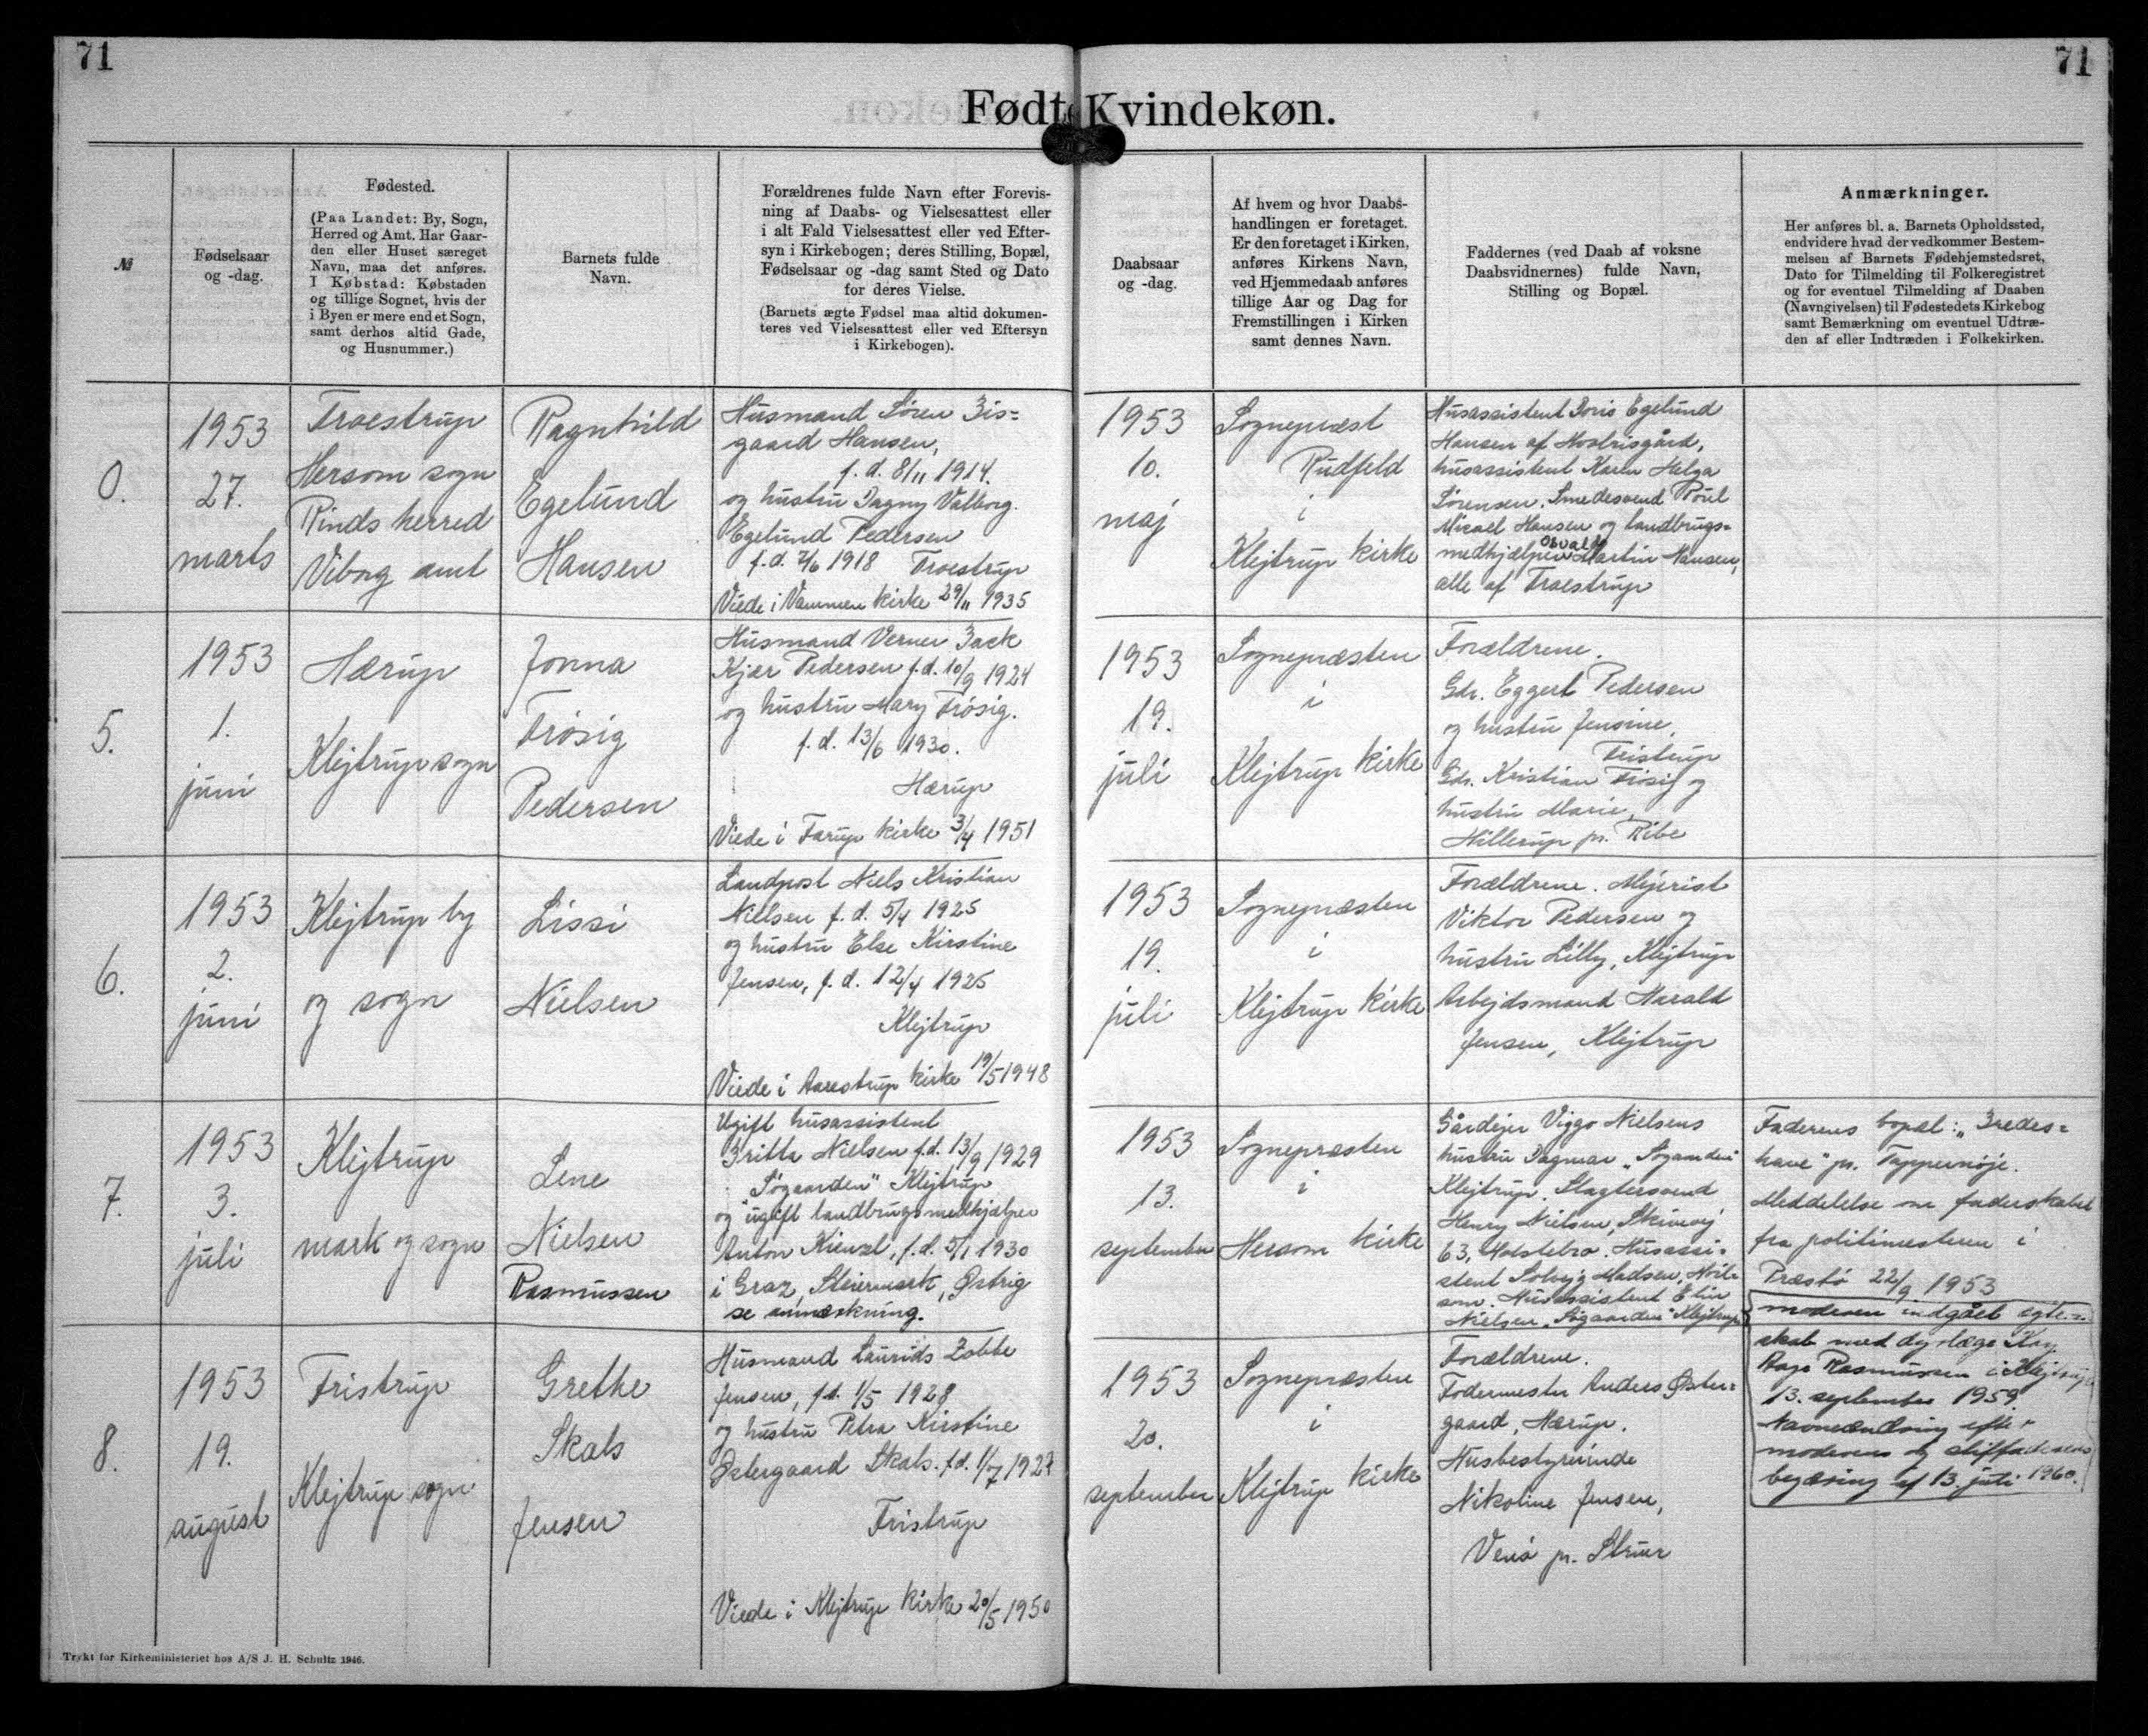 71
71
Født Kvindekøn.
№
Fødselsaar
og -dag.
Fødested.
(Paa Landet: By, Sogn,
Herred og Amt. Har Gaar-
den eller Huset særeget
Navn, maa det anføres.
I Købstad: Købstaden
og tillige Sognet, hvis der
i Byen er mere end et Sogn,
samt derhos altid Gade,
og Husnummer.)
Barnets fulde
Navn.
Forældrenes fulde Navn efter Forevis-
ning af Daabs- og Vielsesattest eller
i alt Fald Vielsesattest eller ved Efter-
syn i Kirkebogen; deres Stilling, Bopæl,
Fødselsaar og -dag samt Sted og Dato
for deres Vielse.
(Barnets ægte Fødsel maa altid dokumen-
teres ved Vielsesattest eller ved Eftersyn
i Kirkebogen).
Daabsaar
og -dag.
Af hvem og hvor Daabs-
handlingen er foretaget.
Er den foretaget i Kirken,
anføres Kirkens Navn,
ved Hjemmedaab anføres
tillige Aar og Dag for
Fremstillingen i Kirken
samt dennes Navn.
Faddernes (ved Daab af voksne
Daabsvidnernes) fulde Navn,
Stilling og Bopæl.
Anmærkninger.
Her anføres bl. a. Barnets Opholdssted,
endvidere hvad der vedkommer Bestem-
melsen af Barnets Fødehjemstedsret,
Dato for Tilmelding til Folkeregistret
og for eventuel Tilmelding af Daaben
(Navngivelsen) til Fødestedets Kirkebog
samt Bemærkning om eventuel Udtræ-
den af eller Indtræden i Folkekirken.
0.
1953
27.
marts
Troestrup
Hersom sogn
Rinds herred
Viborg amt
Ragnhild
Egelund
Hansen
Husmand Søren Bis=
gaard Hansen,
f. d. 8/11 1914.
og hustru Dagny Valborg
Egelund Pedersen
1918 Troestrup
Viede i Vammen kirke 29/11 1935
1953
10.
maj
Sognepræst
Rudfeld
i
Klejtrup kirke
Husassistent Doris Egelund
Hansen af
husassistent Karen Helga
Sørensen. Smedesvend Poul
Micael Hansen og landbrugs=
medhjælper Osvald Martin Hansen,
alle af Troestrup
5.
1953
1.
juni
Hærup
Klejtrup sogn
Jonna
Frösig
Pedersen
Husmand Verner Back
Kjær Pedersen f.d. 10/9 1924
og hustru Mary Frösig.
f. d. 13/6 1930.
Hærup
Viede i Farup kirke 3/4 1951
1953
19.
juli
Sognepræsten
i
Klejtrup kirke
Forældrene.
Gdr. Eggert Pedersen
og hustru Jensine,
Fristrup
Gdr. Kristian Frösig og
hustru Marie,
Hillerup pr. Ribe
6.
1953
2.
juni
Klejtrup by
og sogn
Lissi
Nielsen
Landpost Niels Kristian
Nielsen f. d. 5/4 1925
og hustru Else Kirstine
Jensen, f. d. 12/4 1925
Klejtrup
Viede i Aarestrup kirke 19/5 1948
1953
19.
juli
Sognepræsten
i
Klejtrup kirke
Forældrene. Mejerist
Viktor Pedersen og
hustru Lilly, Klejtrup
Arbejdsmand Harald
Jensen, Klejtrup
7.
1953
3.
juli
Klejtrup
mark og sogn
Lene
Nielsen
Rasmussen
Ugift husassistent
Britta Nielsen f.d. 13/9 1929
"Søgaarden" Klejtrup
og ugift landbrugsmedhjælper
Anton Kienzl, f. d. 5/1 1930
i Graz, Steiermark, Østrig
se anmærkning.
1953
13.
september
Sognepræsten
i
Hersom kirke
Gårdejer Viggo Nielsens
hustru Dagmar "Søgaarden"
Klejtrup. Slagtersvend
Henry Nielsen, Skivevej
63, Holstebro. Husassi=
stent Solvejg Madsen,
Husassistent Elin
Nielsen, "Søgaarden" Klejtrup
Faderens bopæl: "Bredes=
have" pr. Tappernøje.
Meddelelse om faderskabet
fra politimesteren i
Præstö 22/9 1953
moderen indgået ægte=
skab med dyrlæge Kay
Aage Rasmussen i Klejtrup
13. september 1959.
Navneændring efter
moderens og stiffaderens
begæring af 13. juli 1960.
8.
1953
19.
august
Fristrup
Klejtrup sogn
Grethe
Skals
Jensen
Husmand Laurids Zobbe
Jensen, f.d. 1/5 1928
og hustru Petra Kirstine
Østergaard Skals. f.d. 1/7 1927
Fristrup
Viede i Klejtrup kirke 20/5 1950
1953
20.
september
Sognepræsten
i
Klejtrup kirke
Forældrene.
Fodermester Anders Øster=
gaard, Hærup.
Husbestyrerinde
Nikoline Jensen,
Venö pr. Struer
Trykt for Kirkeministeriet hos A/S J. H. Schultz 1946.